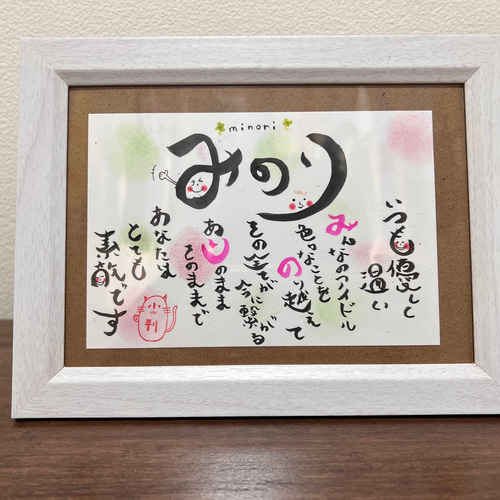 minori
みのり
いつも優しく
温い
みんなのアイドル
色んなことを
のり越えて
その全てが
今に繋がる
ありのまま
そのままで
あなたは
とても
素敵です
小判